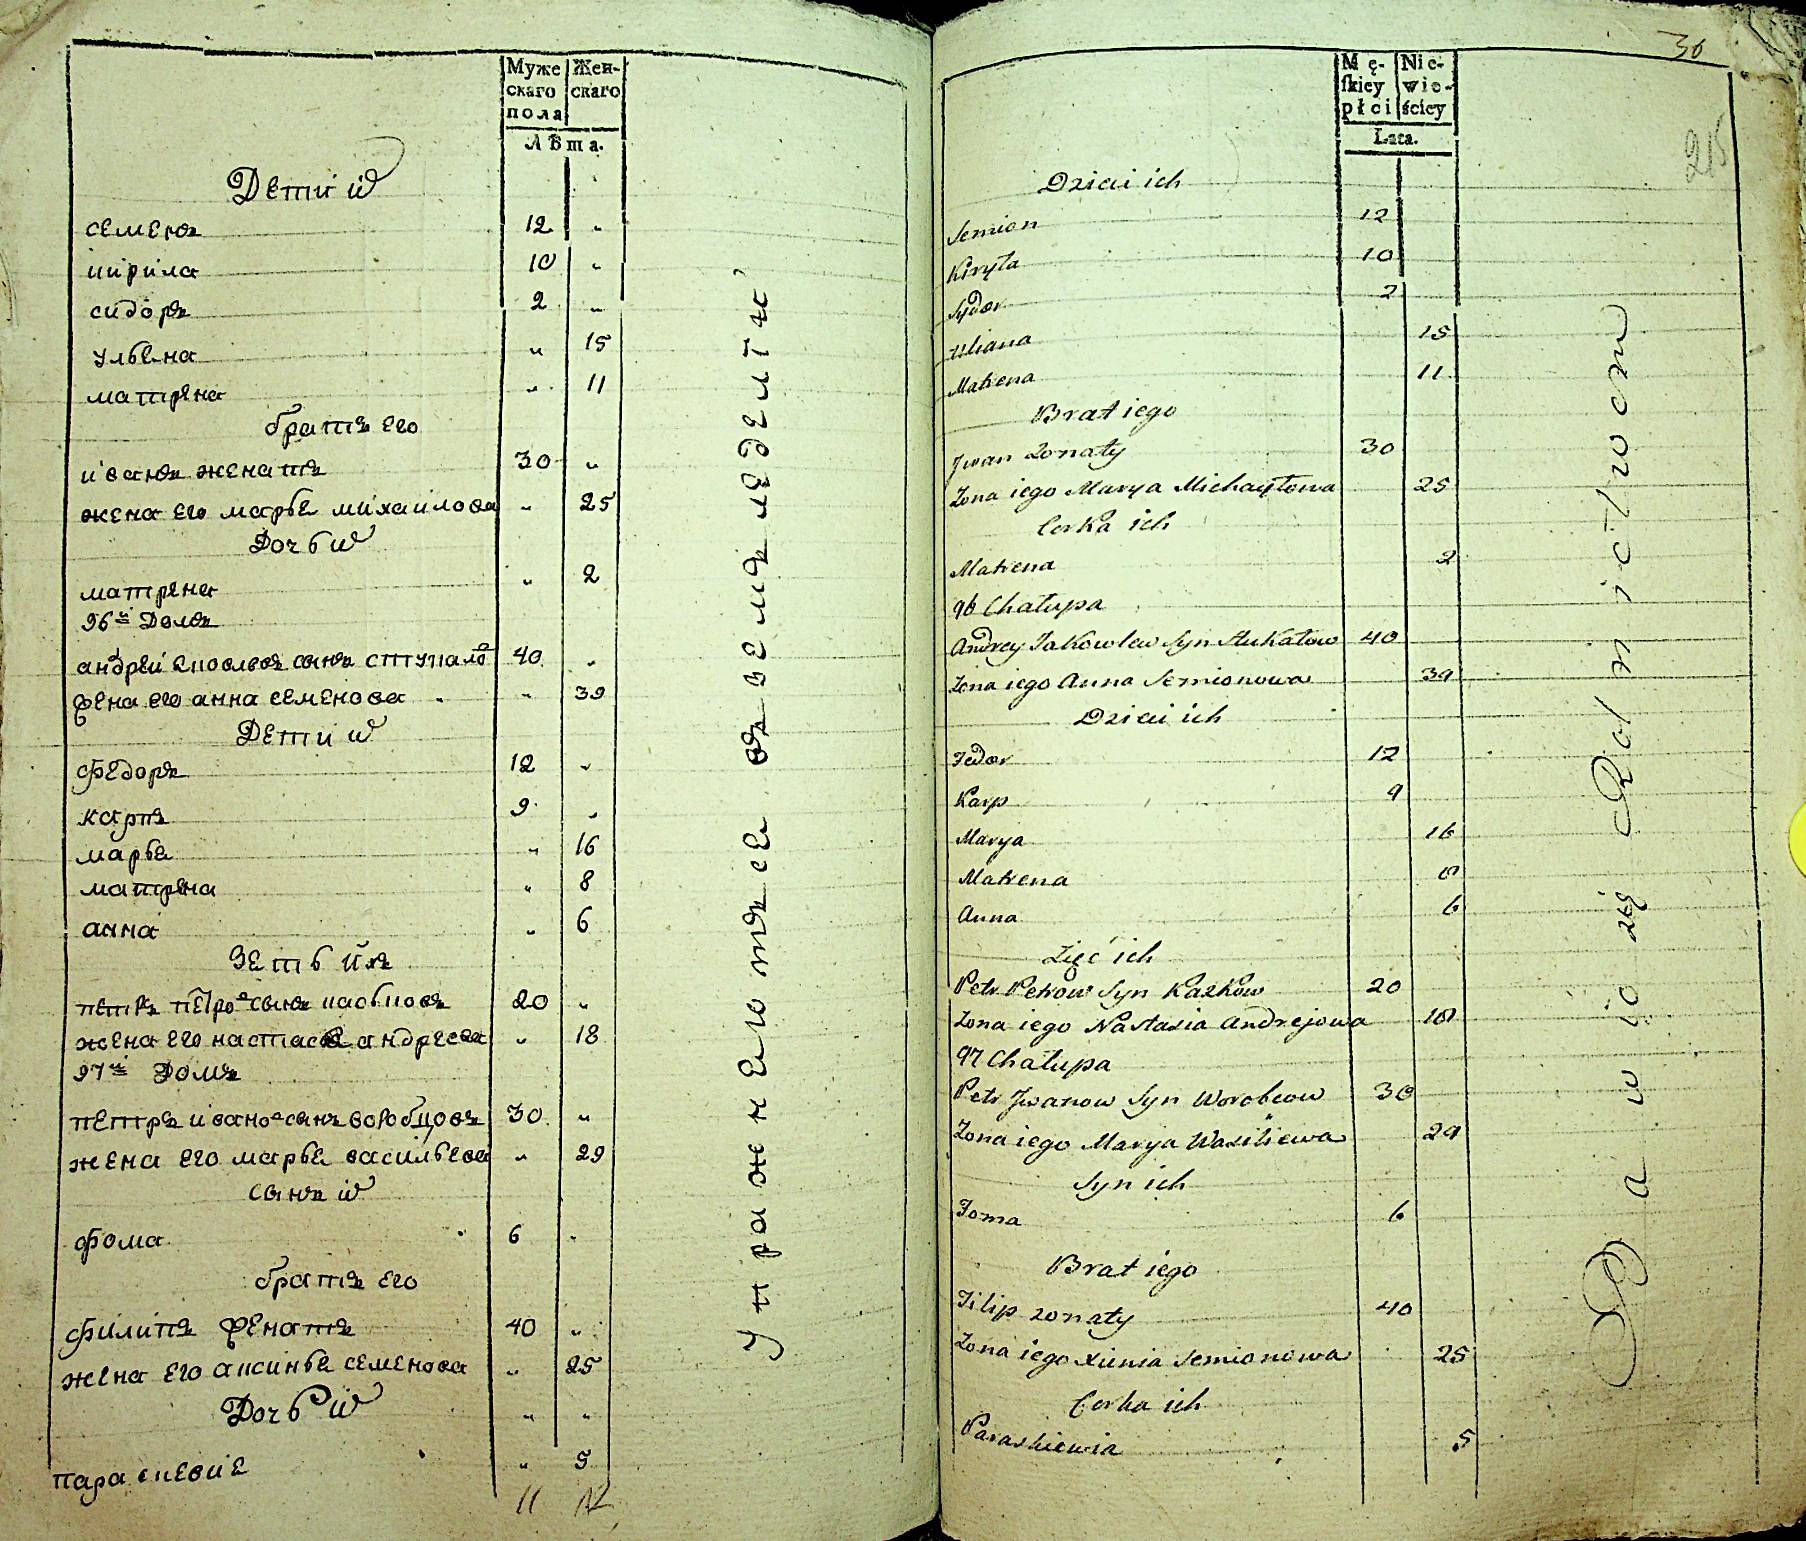 Муже
скаго
пола
Жен-
скаго
Лѣта.
Дети их
семенъ 12 „
кирила 10 „
сидоръ 2 „
ульѣна „ 15
матрена „ 11
братъ его
иванъ женатъ 30 „
жена его марьѣ михаилова „ 25
Дочь их
матрена „ 2
96й Домъ
андреи ѣковлевъ сынъ 40 „
жена его анна семенова „ 39
Дети их
федоръ 12 „
карпъ 9 „
марьѣ „ 16
матрена „ 8
анна „ 6
зеть их
петръ петровъ сынъ 20 „
жена его настасьѣ андреева „ 18
97й Домъ
петръ ивановъ сынъ воробцовъ 30 „
жена его марьѣ васильева „ 29
сынъ их
фома 6 „
братъ его
филипъ женатъ 40 „
жена его аксиньѣ семенова „ 25
Дочь их „ „
параскевиѣ „ 5
11 12
упражнѣютсѣ въ земледелти
30
215
Mę-
skiey
płci
Nie-
wie-
ściey
Lata.
Dzieci ich
Semion 12
Kiryła 10
Sydor 2
Uliana 15
Matrena 11
Brat iego
Jwan żonaty 30
Żona iego Marya Michayłowa 25
Corka ich
Matrena 2
96 Chałupa
Andrey Jakowlew Syn 40
Żona iego Anna Semionowa 39
Dzieci ich
Fedor 12
Karp 9
Marya 16
Matrena 8
Anna 6
Zięć ich
Petr Petrow Syn Kazkow 20
Żona iego Nastazia Andrejowa 18
97 Chałupa
Petr Jwanow Syn Worobcow 30
Żona iego Marya Wasiliewa 29
Syn ich
Foma 6
Brat iego
Filip żonaty 40
Żona iego Xienia Semionowa 25
Corka ich
Paraskiewia 5
Bawio się Rolnictwem